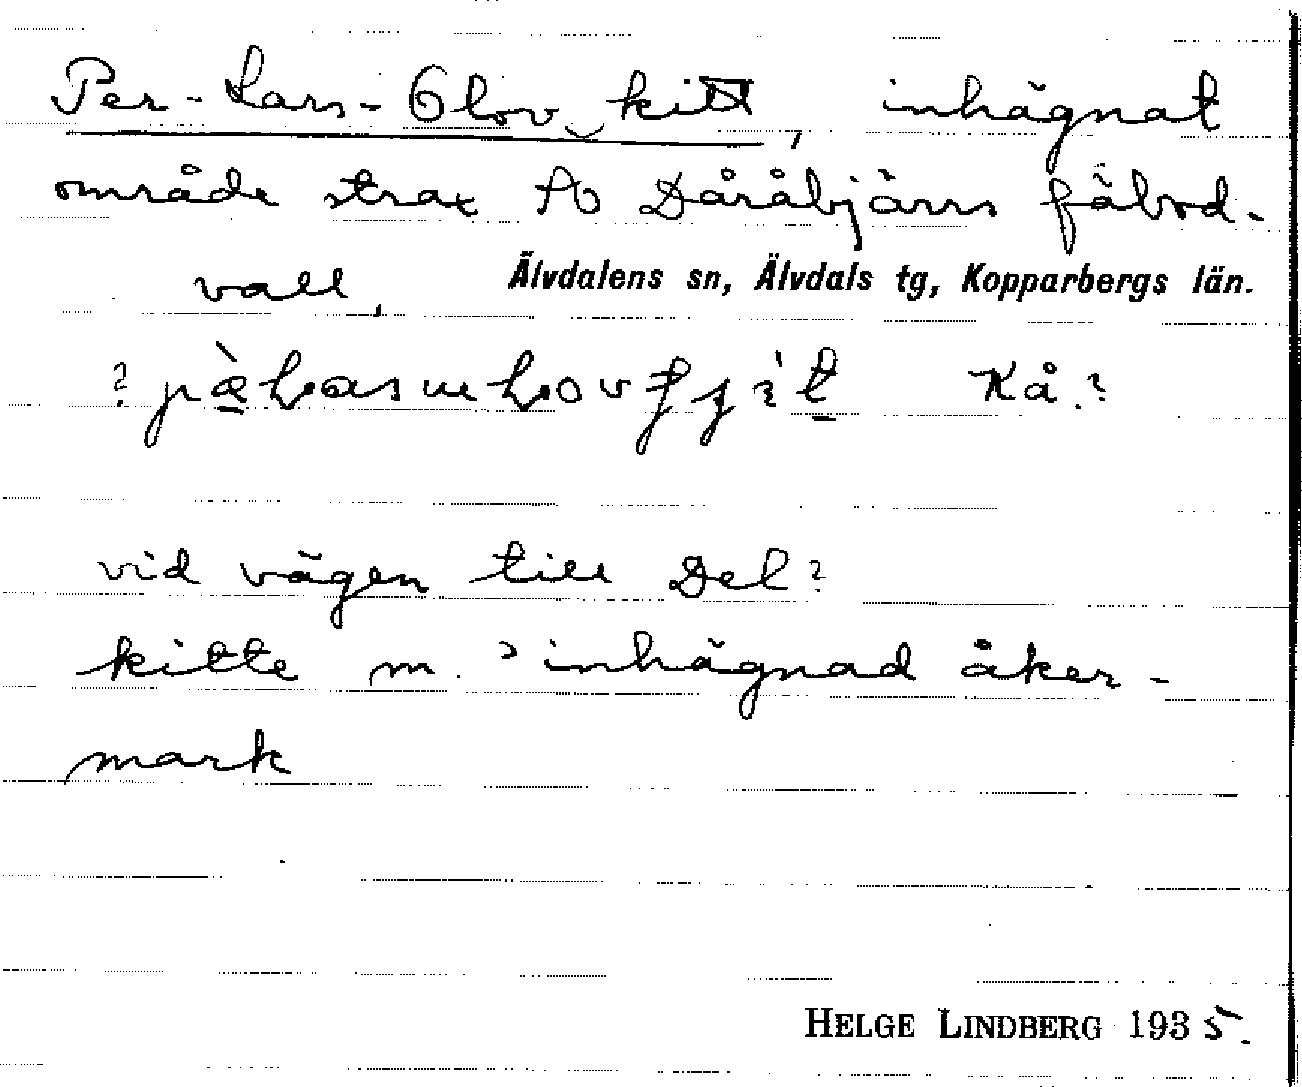 Per-Lars-Olov kitt, inhägnat
område strax
fäbod-
vall,
Älvdalens sn, Älvdals tg, Kopparbergs län.
vid vägen till Del?
kitte m. inhägnad åker-
mark
HELGE LINDBERG 1935.